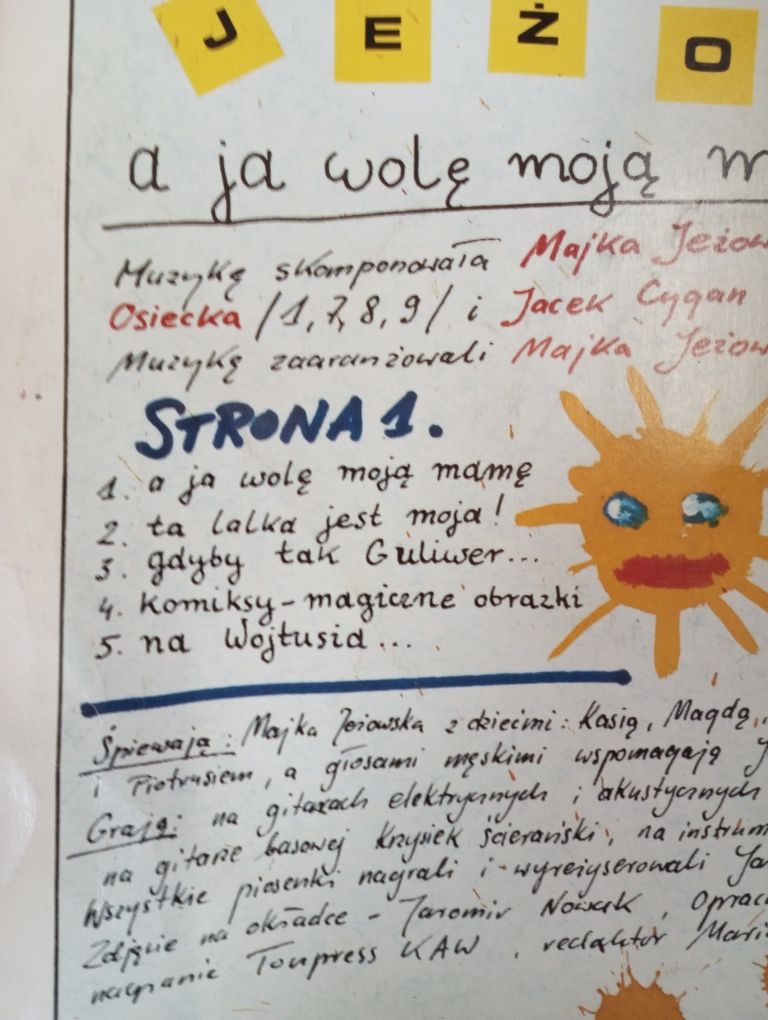 J E Ż O
a ja wolę moją m
Muzykę skomponowała Majka Jeżow
Osiecka /1, 7, 8, 9/ i Jacek Cygan
Muzykę zaaranżowali Majka Jeżow
STRONA 1.
1. a ja wolę moją mamę
2. ta lalka jest moja!
3. gdyby tak Guliwer...
4. komiksy-magiczne obrazki
5. na Wojtusia...
Śpiewają: Majka Jeżowska z dziećmi: Kasią, Magdą,
i Piotrusiem, a głosami męskimi wspomagają J
Grają: na gitarach elektrycznych i akustycznych
na gitarze basowej Krzysiek Ścierański, na instrum
Wszystkie piosenki nagrali i wyreżyserowali Ja
Zdjęcie na okładce - Jaromir Nowak, Oprac
nagranie Tonpress KAW, redaktor Mari